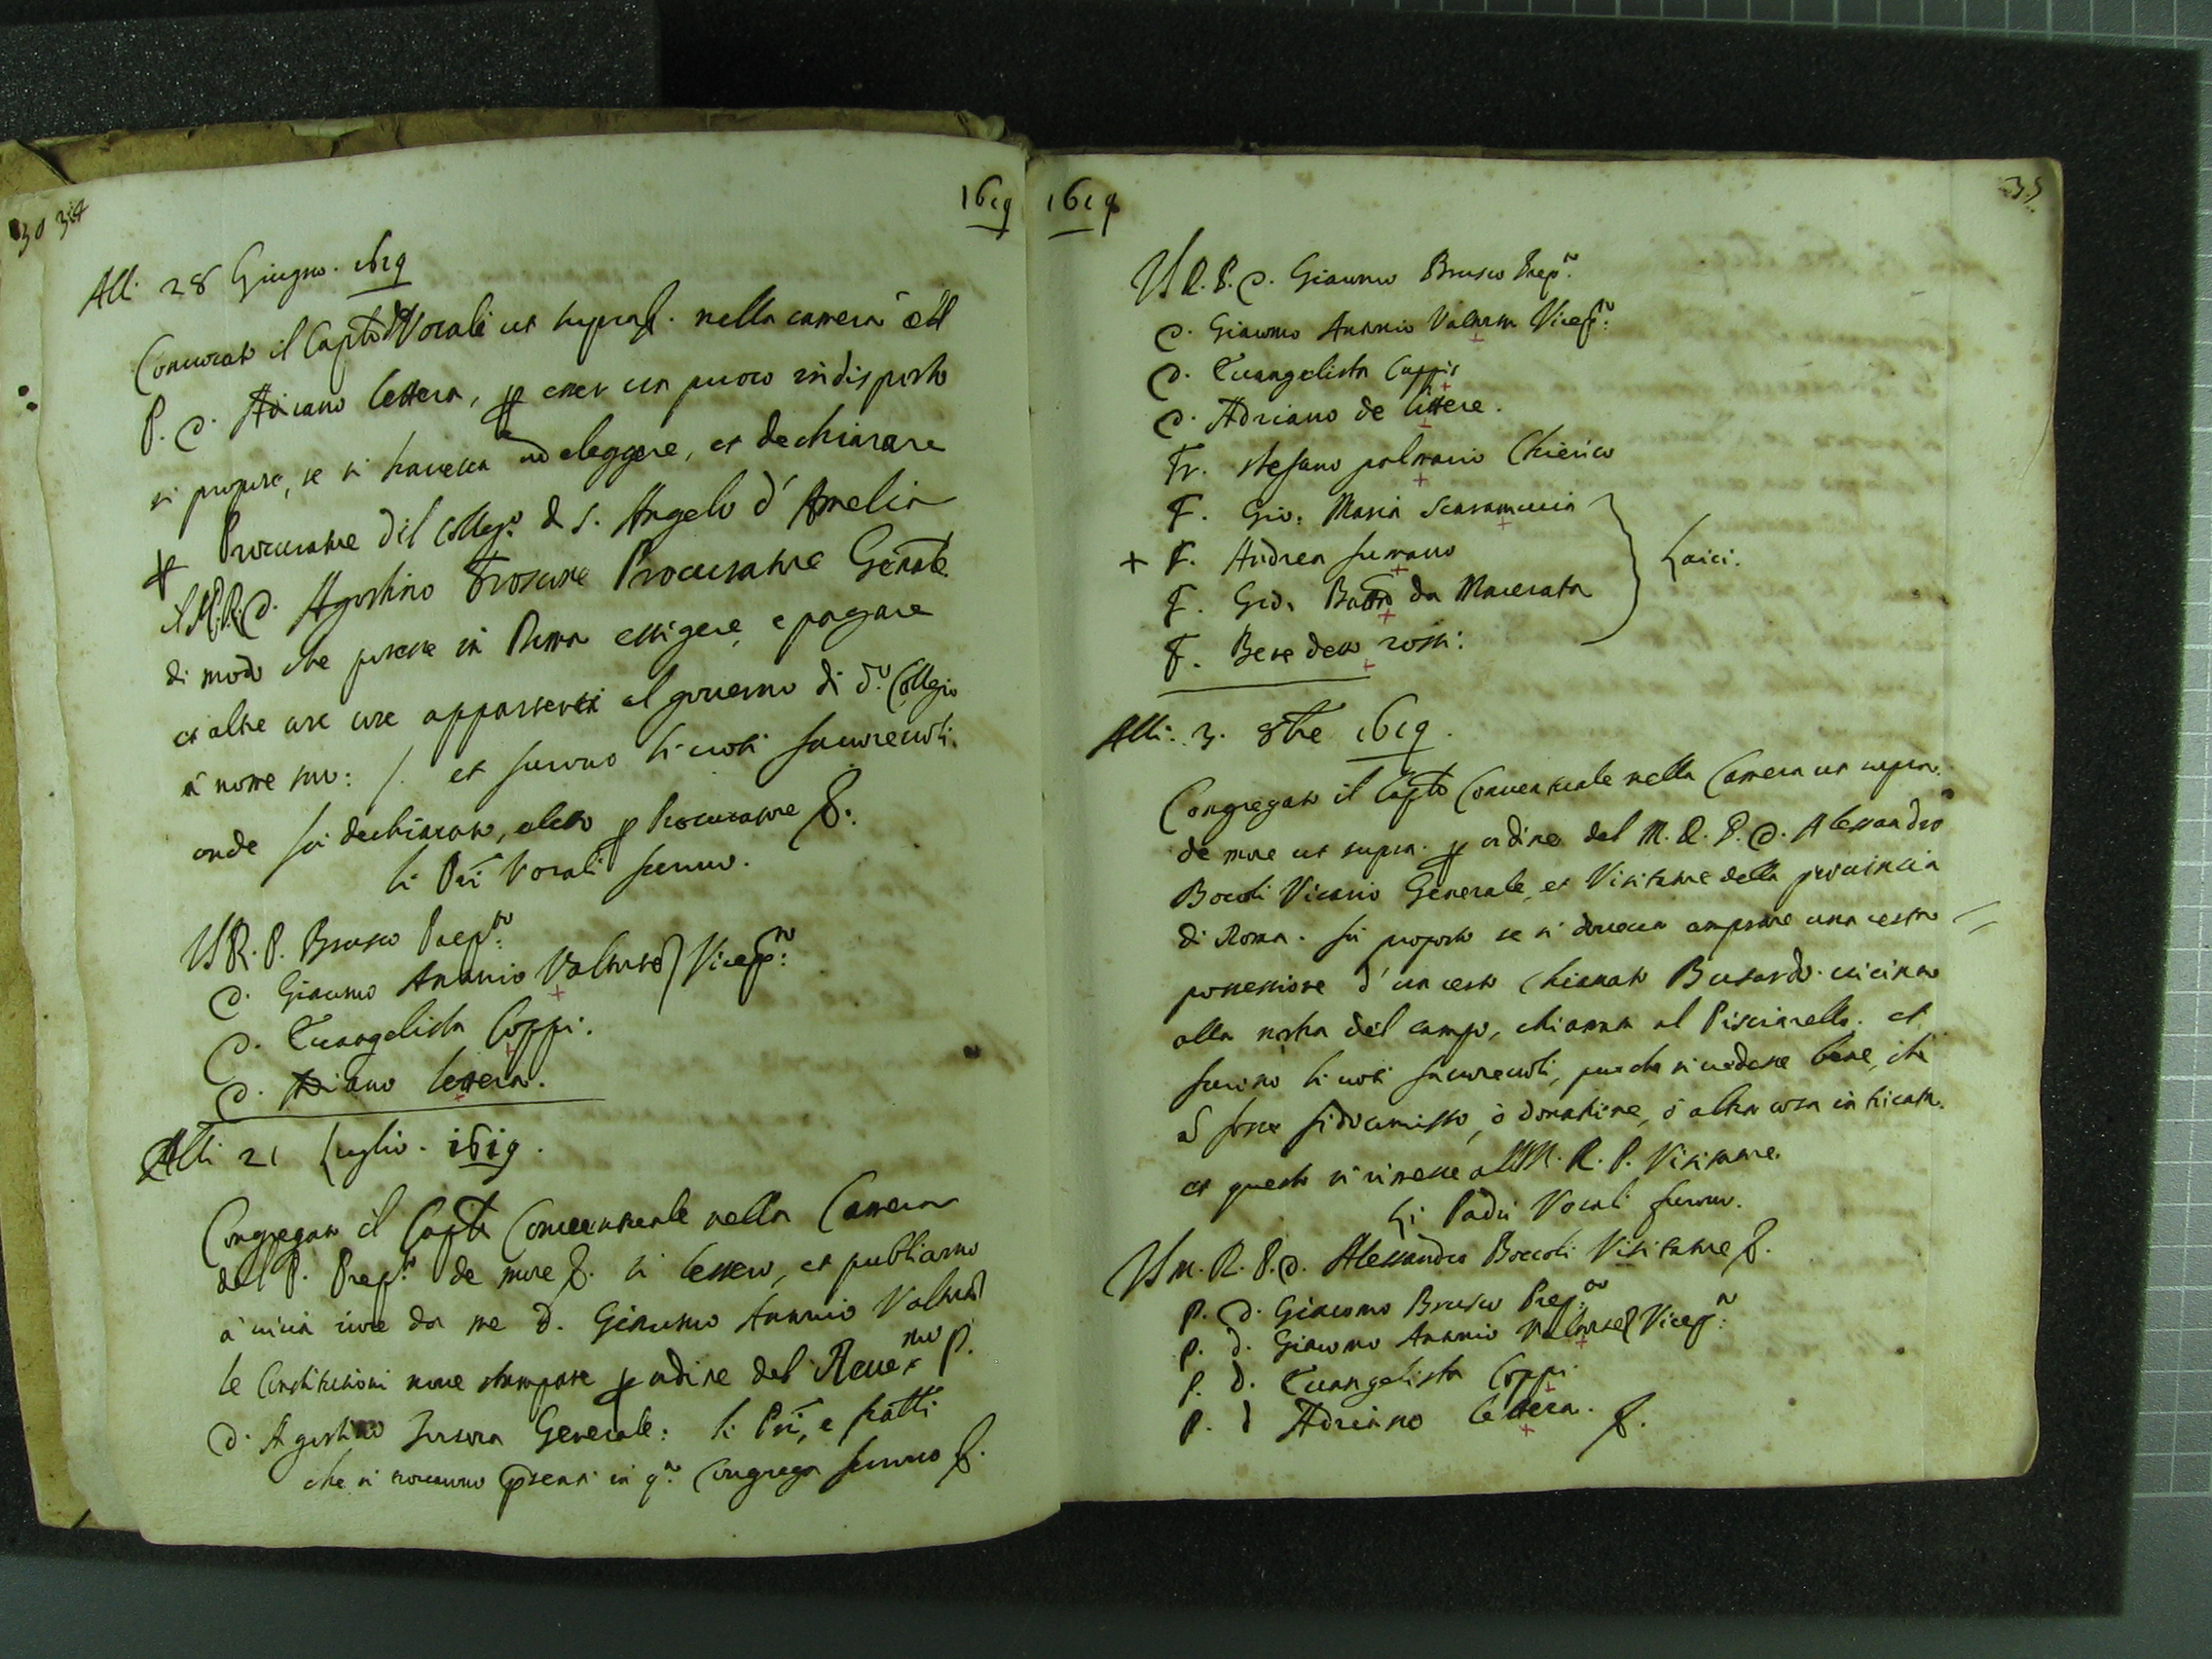 34
1619
Alli 28 Giugno. 1619
Conuocato il Capto Vocali ut supra &. nella camera del
P. D. Adriano lettera, p esser un puoco indisposto
si propose, se si haueua ad eleggere, et dechiarare
Procuratore del Collego. di S. Angelo d' Amelia
il M.R.P. D. Agostino Procuratore Genale
di modo che potesse in Roma essigere, e pagare
et altre cose appartenenti al gouerno di do. Collegio
à nome suo: /. et furono li uoti fauoreuoli.
onde fù dechiarato, eletto p Procuratore &.
li Pri Vocali furno.
Il R. P. Brusco Prepto:
D. Giacomo Antonio Valtorta Vicepto:
D. Euangelista Coppi.
D. Adriano lettera.
Alli 21 Luglio. 1619.
Congregato il Capto Conuentuale nella Camera
del P. Prepto. de more &. si lessero, et publicarno
à uiua uoce da me D. Giacomo Antonio Valtorta
le Constitutioni noue stampate p ordine del Reuermo P.
D. Agostino Generale: li Pri, e fratti
che si trouorno psenti in qta. Congrega furno &.
1619
35
Il R. P. D. Giacomo Brusco Prepto.
D. Giacomo Antonio Valtorta Vicepto:
D. Euangelista Coppis
D. Adriano de littere.
Fr. Stefano palmario Chierico
F. Gio: Maria Scaramuccia
+ F. Andrea sumano
F. Gio. Batta da Macerata
F. Benedetto rossi:
Laici.
Alli. 3. 8bre 1619.
Congregato il Capto Conuentuale nella Camera ut supra.
de more ut supra. p ordine del M. R. P. D. Alessandro
Boccoli Vicario Generale, et Visitatore della prouincia
di Roma. fù proposto se si doueua comprare una certa
possessione d'un certo chiamato Busardo. uicino
alla nostra del campo, chiamata al Pisciarello. et
furono li uoti fauoreuoli, purche si uedesse bene, che
nõ fosse fidocumisso, ò donatione, ò altra cosa intricata.
et questo si rimesse al M. R. P. Visitatore.
Li Padri Vocali furno.
Il M. R. P. D. Alessandro Boccoli Visitatore &.
P. D. Giacomo Brusco Prepto:
P. D. Giacomo Antonio Valtorta Vicepto:
P. D. Euangelista Coppi
P. D Adriano lettera. &.